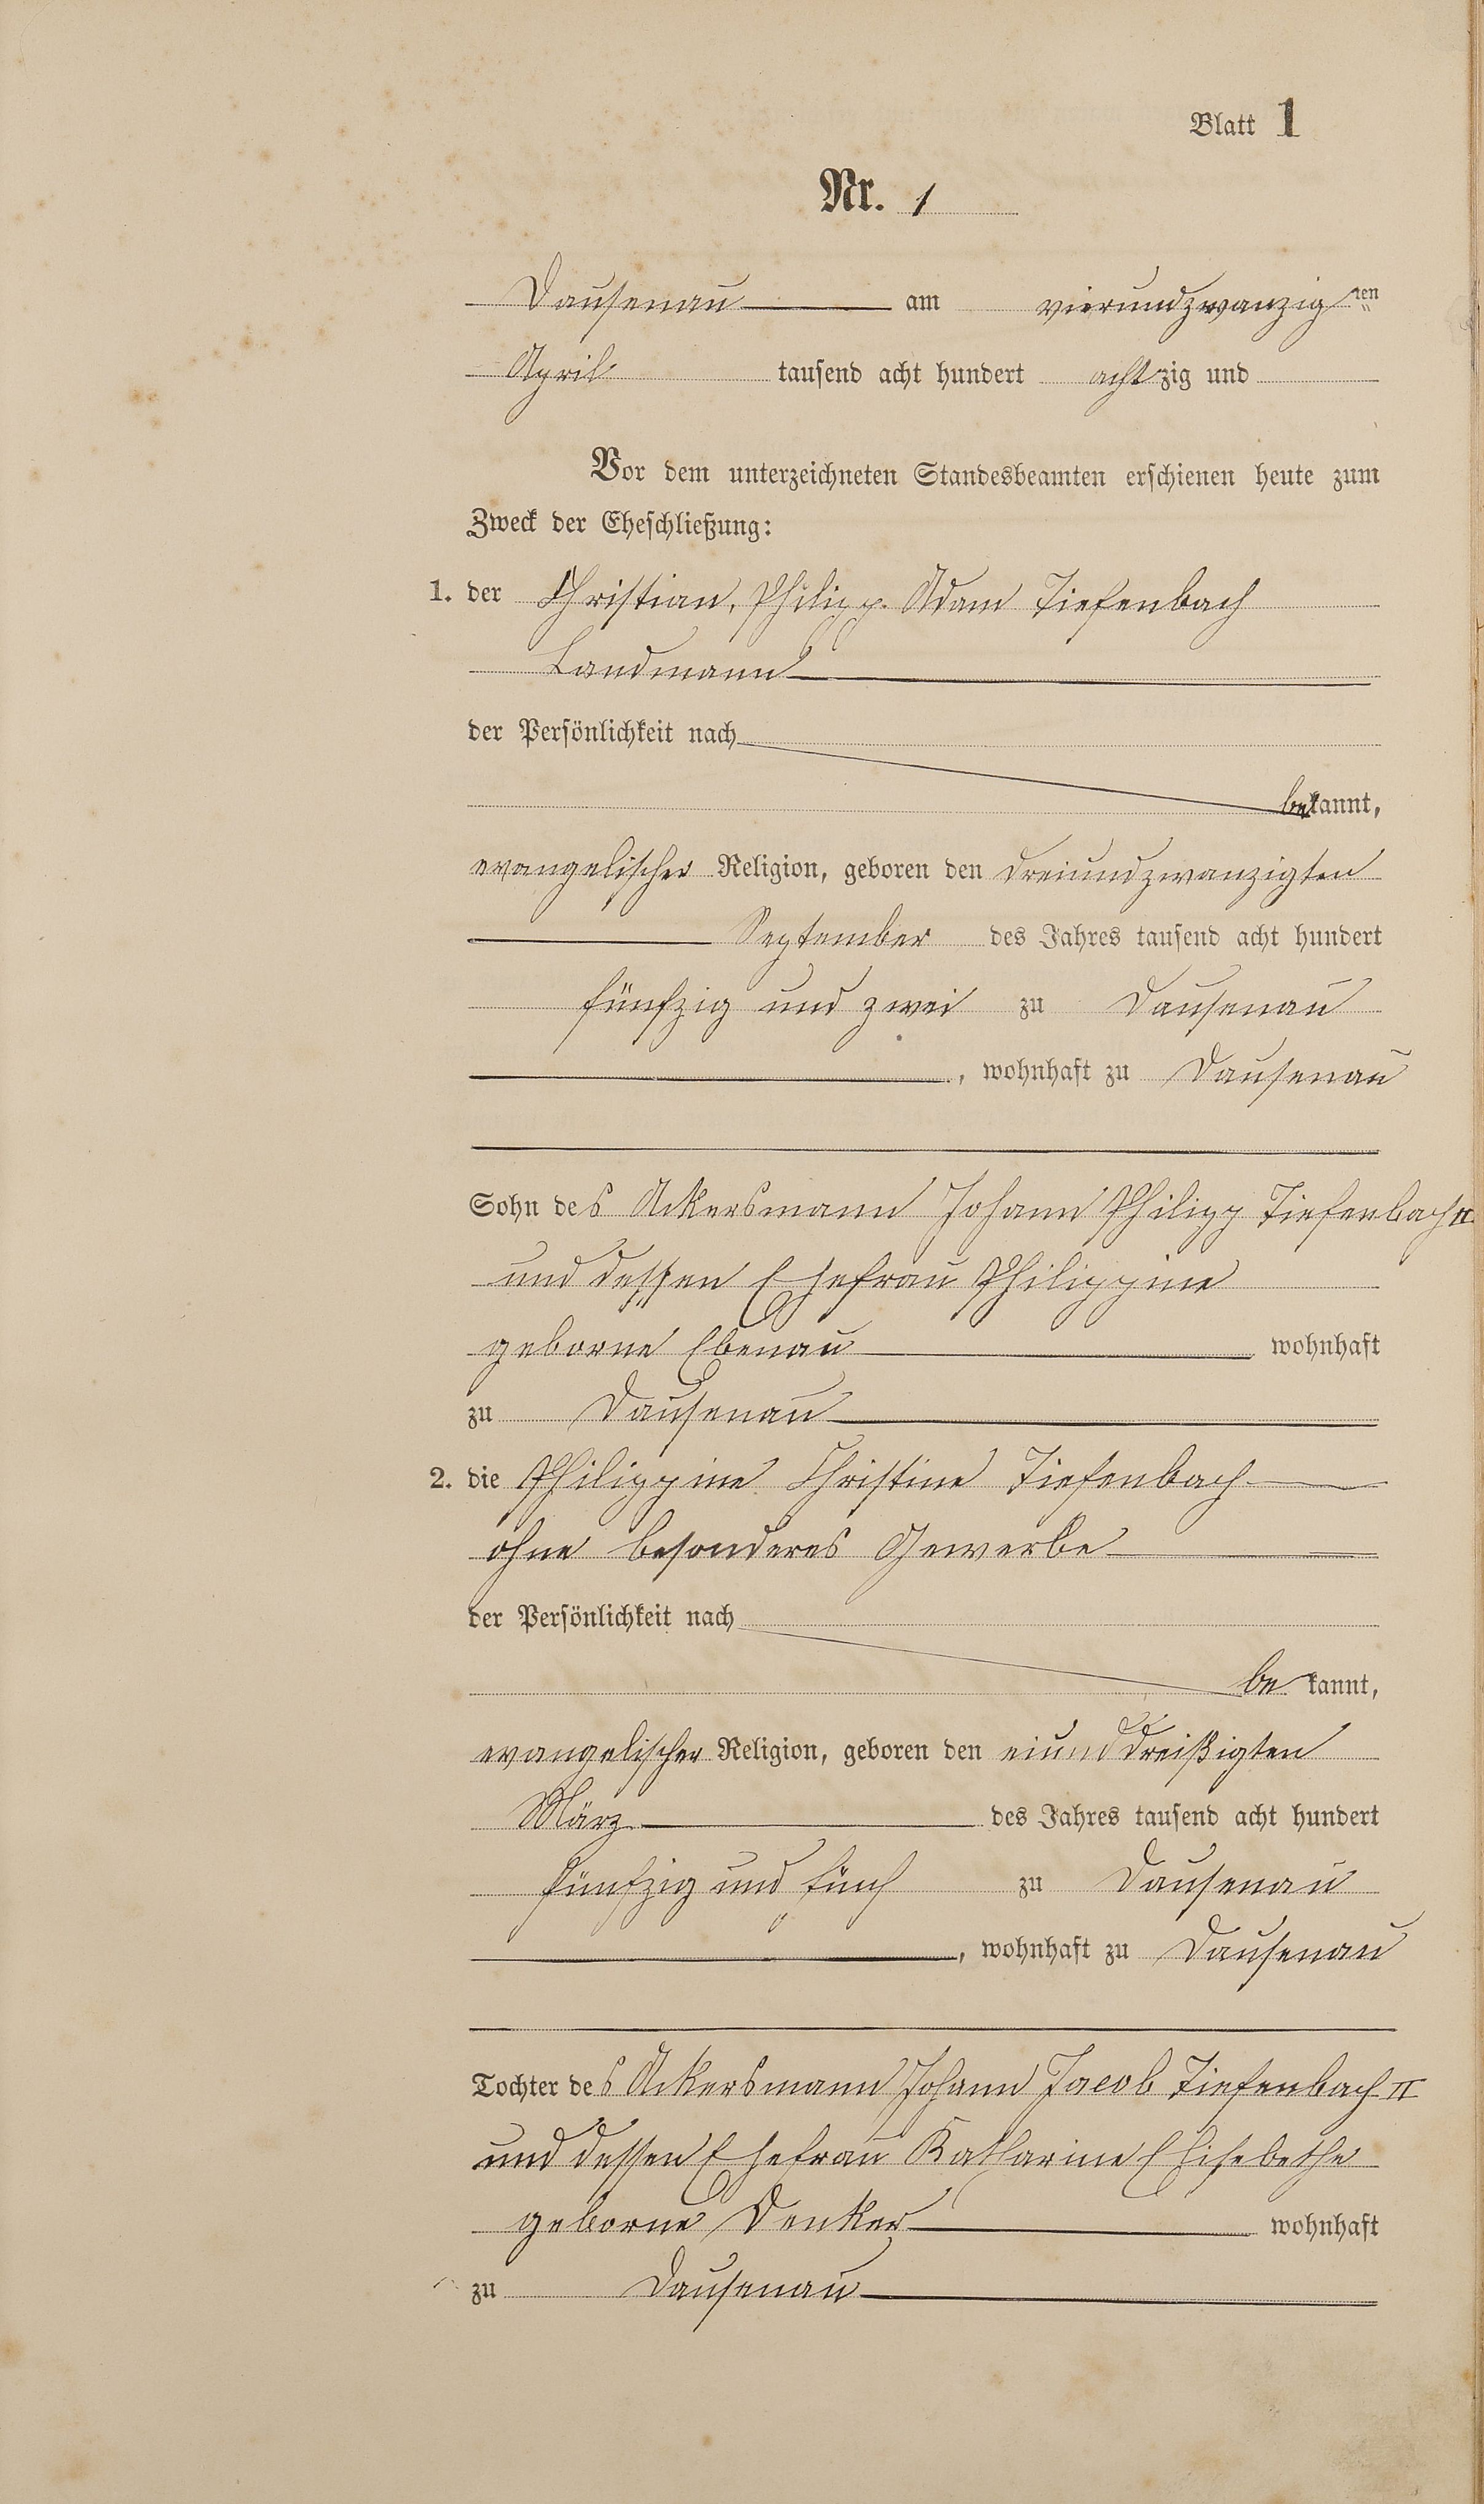 Blatt 1
Nr. 1
Dausenau am vierundzwanzig ten
April tausend acht hundert achtzig und
Vor dem unterzeichneten Standesbeamten erschienen heute zum
Zweck der Eheschließung:
1. der Christian, Philipp Adam Tiefenbach
Landmann
der Persönlichkeit nach
bekannt,
evangelischer Religion, geboren den dreiundzwanzigten
September des Jahres tausend acht hundert
fünfzig und zwei zu Dausenau
, wohnhaft zu Dausenau
Sohn des Ackersmann Johann Philipp Tiefenbach II
und dessen Ehefrau Philippine
geborne Ebenau wohnhaft
zu Dausenau
2. die Philippine Christine Tiefenbach
ohne besonderes Gewerbe
der Persönlichkeit nach
be kannt,
evangelischer Religion, geboren den einunddreißigten
März des Jahres tausend acht hundert
fünfzig und fünf zu Dausenau
, wohnhaft zu Dausenau
Tochter des Ackersmann Johann Jacob Tiefenbach II
und dessen Ehefrau Katharine Elisebethe
geborne Denker wohnhaft
zu Dausenau